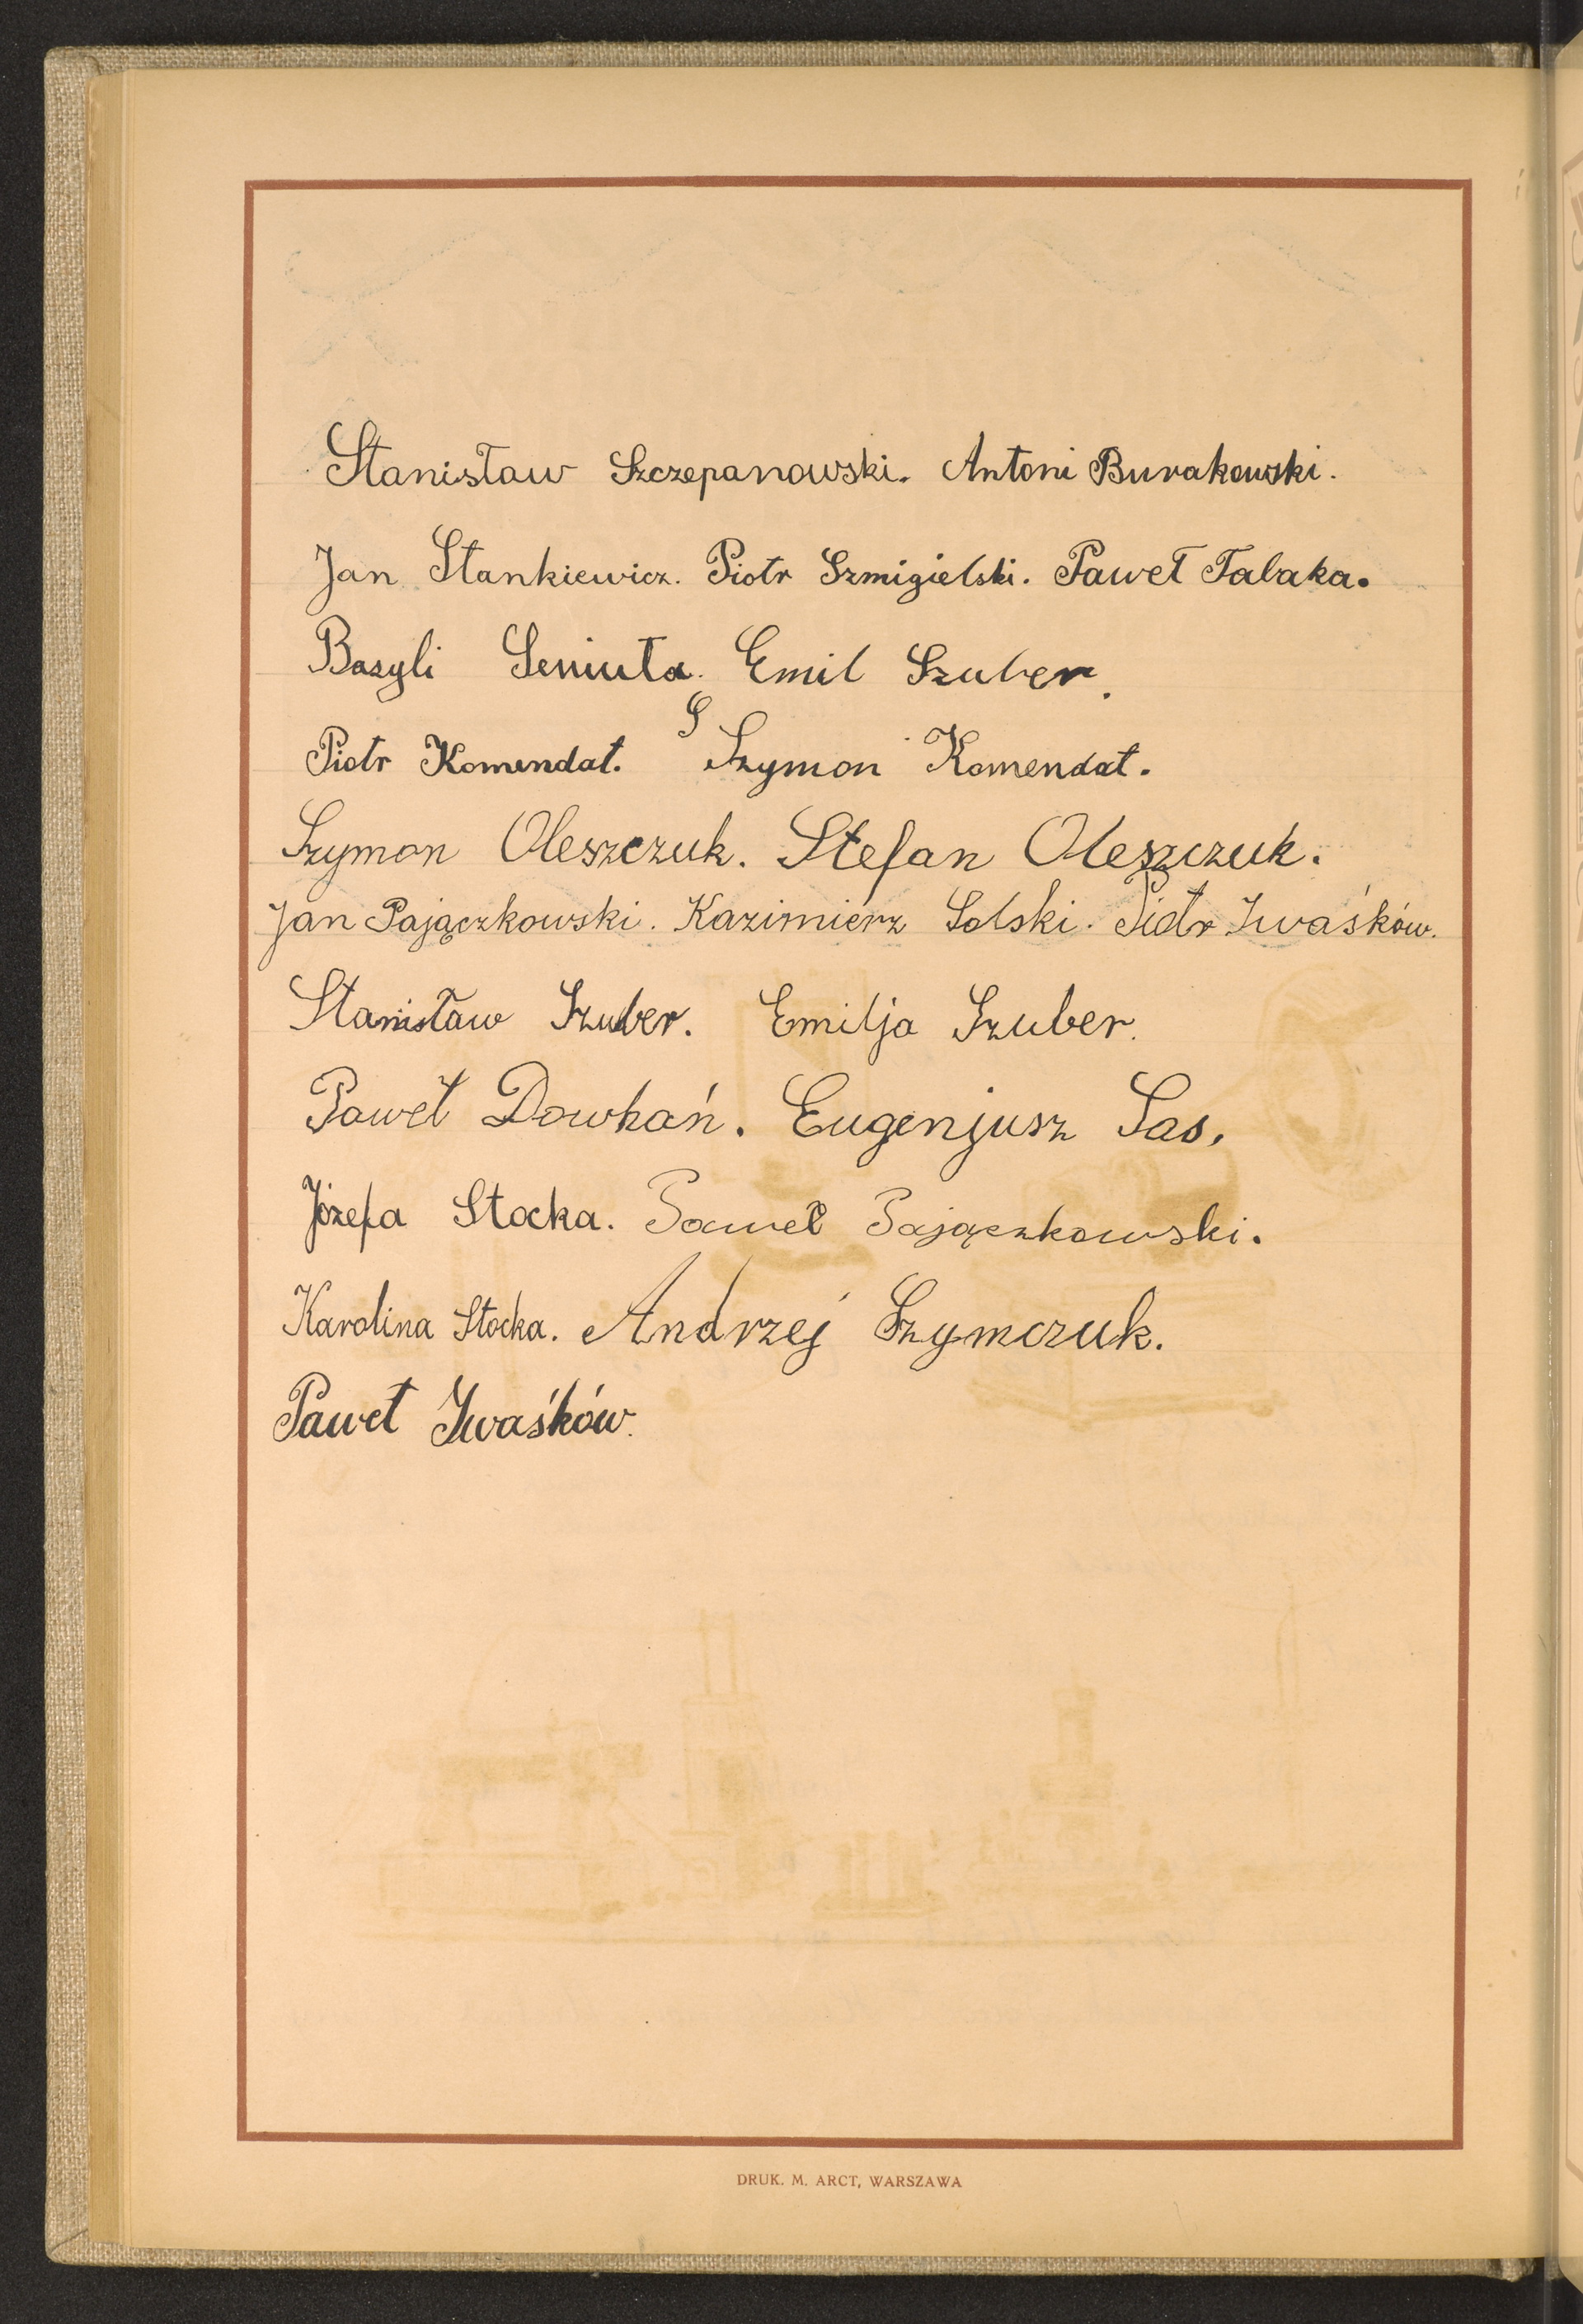 Stanisław Szczepanowski. Antoni Burakowski.
Jan Stankiewicz. Piotr Szmigielski. Paweł Tałaka.
Bazyli Seniuta. Emil Szuber.
Piotr Komendat. S Szymon Komendat.
Szymon Oleszczuk. Stefan Oleszczuk.
Jan Pajączkowski. Kazimierz Solski. Piotr Iwaśków.
Stanisław Szuber. Emilja Szuber.
Paweł Dowhań. Eugenjusz Sas.
Józefa Stocka. Paweł Pajączkowski.
Karolina Stocka. Andrzej Szymczuk.
Paweł Iwaśków.
DRUK. M. ARCT, WARSZAWA